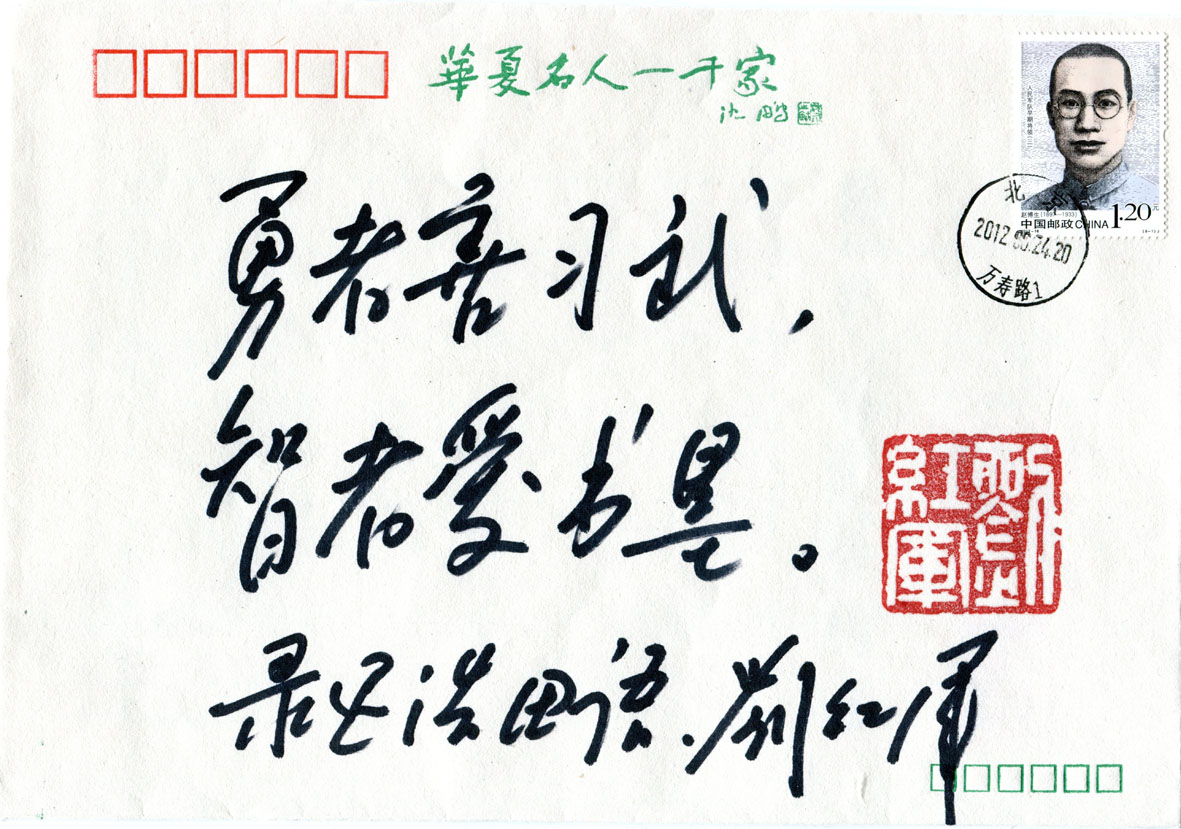 華夏名人一千家
沈鹏
人民军队早期将领(二)
赵博生(1897—1933)
中国邮政CHINA 1.20元
北京
2012.06.24.20
万寿路1
勇者喜习武，
智者愛书墨。
紅軍
录浩田语.刘红军